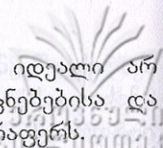 იდეალი არ
ნებებისა და
აფერს.